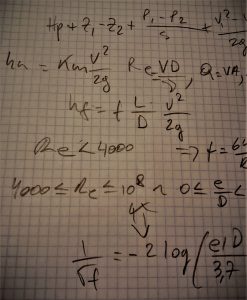 Hp + Z₁ - Z₂ + P₁ - P₂ / + V₁² - V
hm = Km V²/2g Re VD/ν, Q = VA,
hf = f L/D · V²/2g
Re < 4000 => f = 64/R
4000 ≤ Re ≤ 10⁸ n 0 ≤ e/D <
1/√f = -2 log ( e/D / 3,7